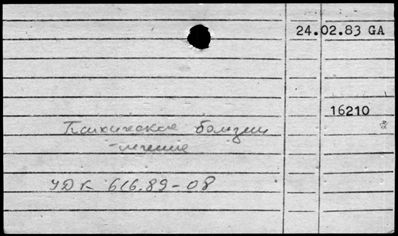 24.02.83 GA
16210
Психические болезни
-лечение
УДК 616.89-08